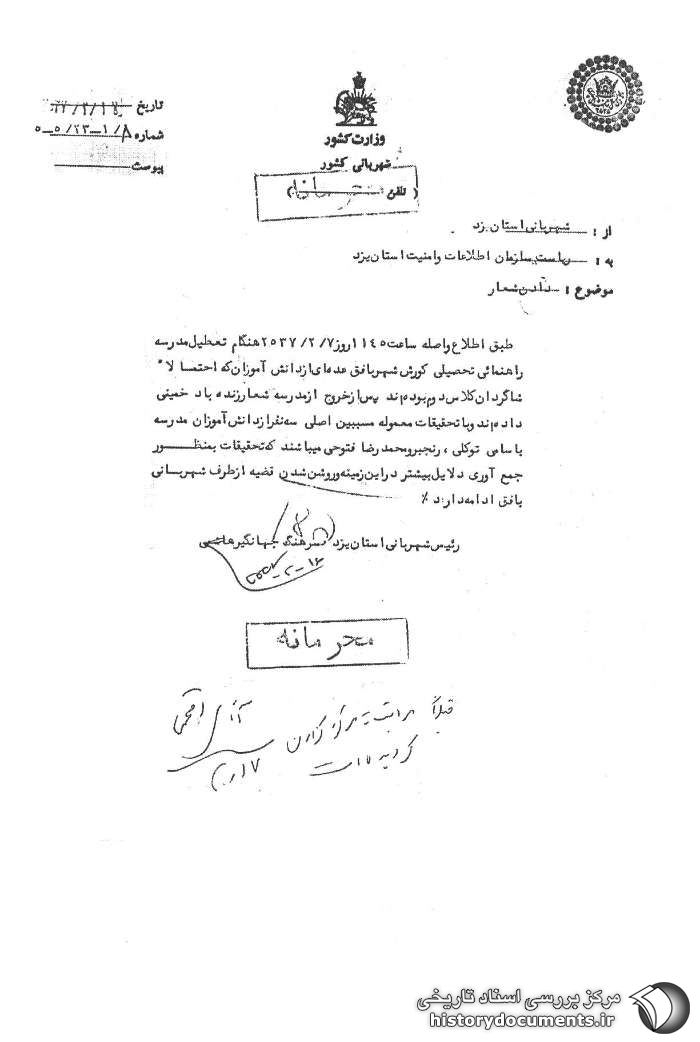 تاریخ ۳۷/۲/۱۷
شماره ۵-۵/۲۳-۱/۸
پیوست
وزارت کشور
شهربانی کشور
( تلفن )
از : شهربانی استان یزد
به : ریاست سازمان اطلاعات و امنیت استان یزد
موضوع : دادن شعار
طبق اطلاع واصله ساعت ۱۱۴۵ روز ۲۵۳۷/۲/۷ هنگام تعطیل مدرسه
راهنمائی تحصیلی کورش شهر بافق عده‌ای از دانش آموزان که احتمالا"
شاگردان کلاس دوم بوده‌اند پس از خروج از مدرسه شعار زنده باد خمینی
داده‌اند و با تحقیقات معموله مسببین اصلی سه نفر از دانش آموزان مدرسه
باسامی توکلی ، رنجبر و محمد رضا فتوحی میباشند که تحقیقات بمنظــــور
جمع آوری دلایل بیشتر در این زمینه و روشن شدن قضیه از طرف شهربــانی
بافق ادامه دارد ٪
رئیس شهربانی استان یزد سرهنگ جهانگیر هاشمی
محرمانه
قبلاً مراتب به مرکز گزارش
گردیده است
آقای
۱۷
مرکز بررسی اسناد تاریخی
historydocuments.ir